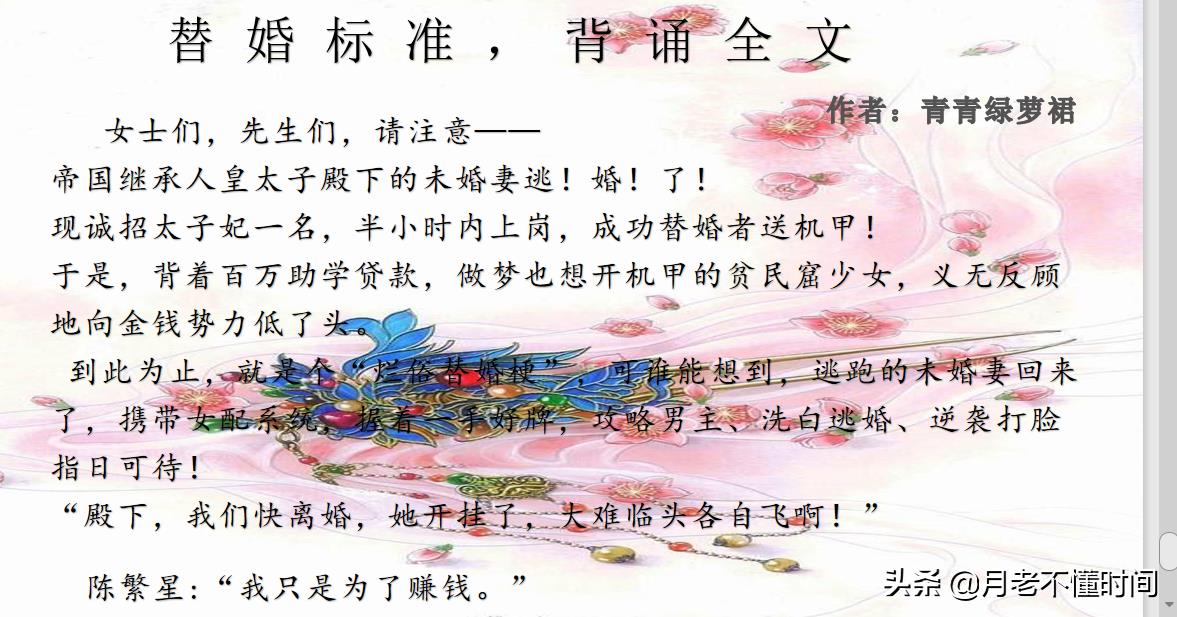 替婚标准，背诵全文
作者：青青绿萝裙
女士们，先生们，请注意——
帝国继承人皇太子殿下的未婚妻逃！婚！了！
现诚招太子妃一名，半小时内上岗，成功替婚者送机甲！
于是，背着百万助学贷款，做梦也想开机甲的贫民窟少女，义无反顾
地向金钱势力低了头。
到此为止，就是个“烂俗替婚梗”，可谁能想到，逃跑的未婚妻回来
了，携带女配系统，握着一手好牌，攻略男主、洗白逃婚、逆袭打脸
指日可待！
“殿下，我们快离婚，她开挂了，大难临头各自飞啊！”
陈繁星：“我只是为了赚钱。”
头条 @月老不懂时间